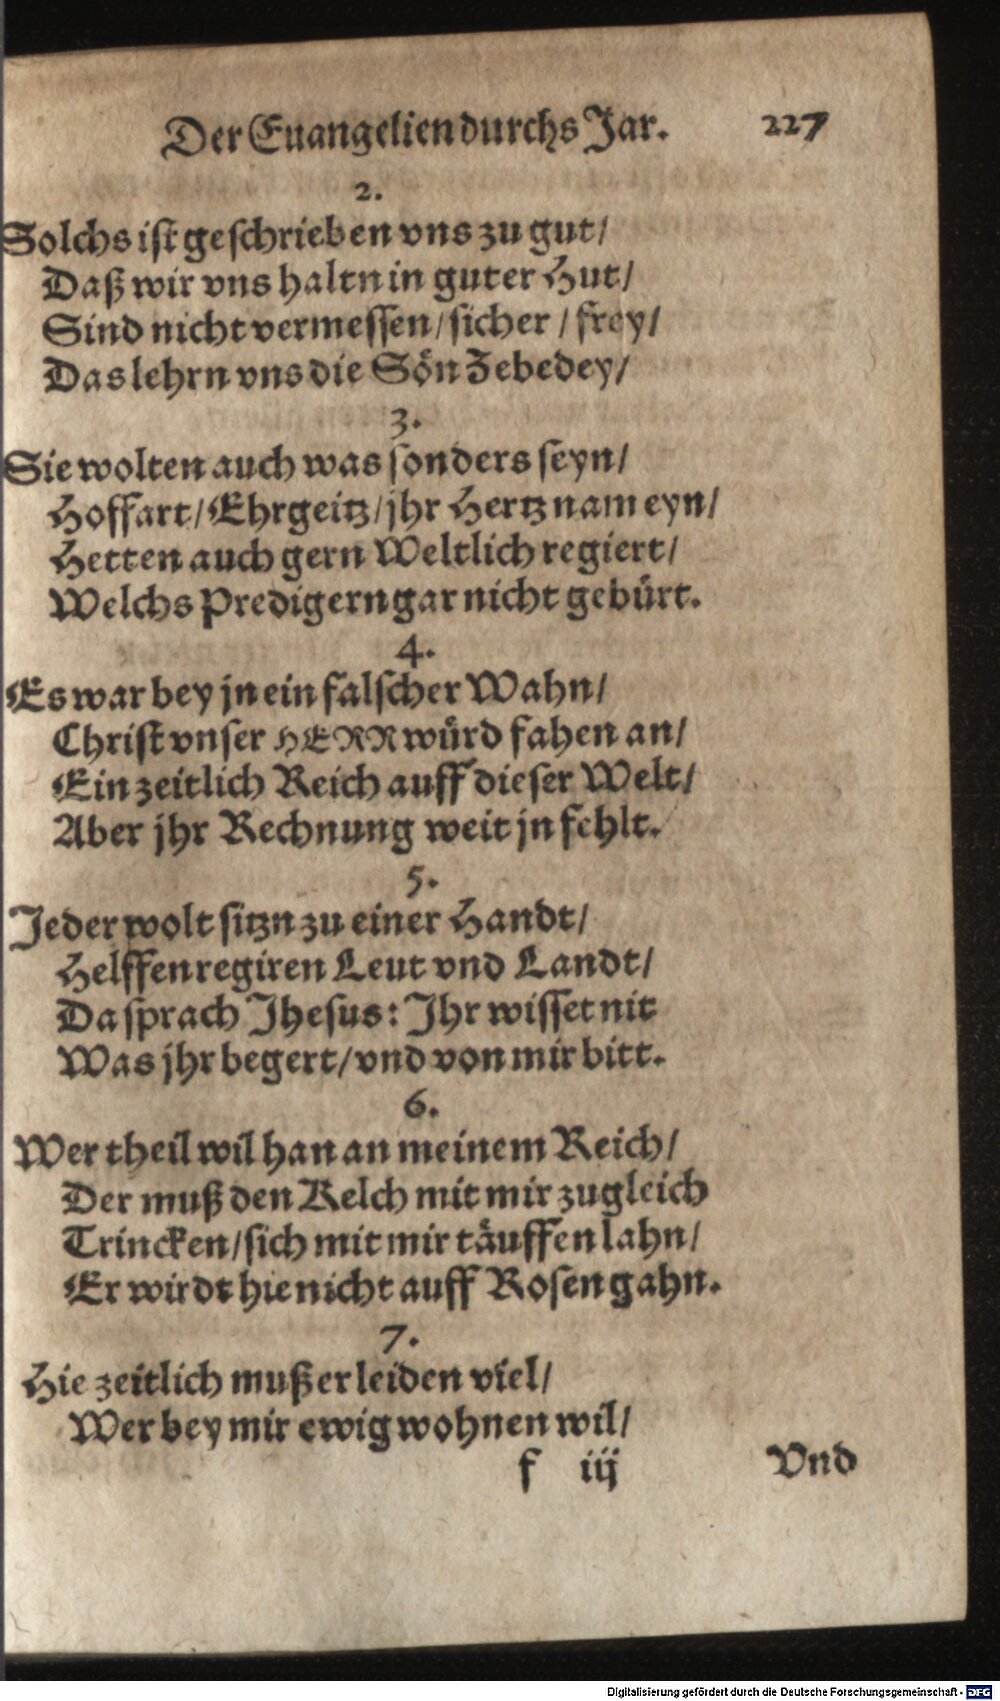 Der Euangelien durchs Jar. 227
2.
Solchs ist geschrieben vns zu gut/
Daß wir vns haltn in guter Hut/
Sind nicht vermessen/ sicher / frey/
Das lehrn vns die Sön Zebedey/
3.
Sie wolten auch was sonders seyn/
Hoffart/ Ehrgeitz/ jhr Hertz nam eyn/
Hetten auch gern Weltlich regiert/
Welchs Predigern gar nicht gebürt.
4.
Es war bey jn ein falscher Wahn/
Christ vnser HERR würd fahen an/
Ein zeitlich Reich auff dieser Welt/
Aber jhr Rechnung weit jn fehlt.
5.
Jeder wolt sitzn zu einer Handt/
Helffen regiren Leut vnd Landt/
Da sprach Jhesus: Jhr wisset nit
Was jhr begert/ vnd von mir bitt.
6.
Wer theil wil han an meinem Reich/
Der muß den Kelch mit mir zugleich
Trincken/ sich mit mir täuffen lahn/
Er wirdt hie nicht auff Rosen gahn.
7.
Hie zeitlich muß er leiden viel/
Wer bey mir ewig wohnen wil/
f iij Vnd
Digitalisierung gefördert durch die Deutsche Forschungsgemeinschaft - DFG